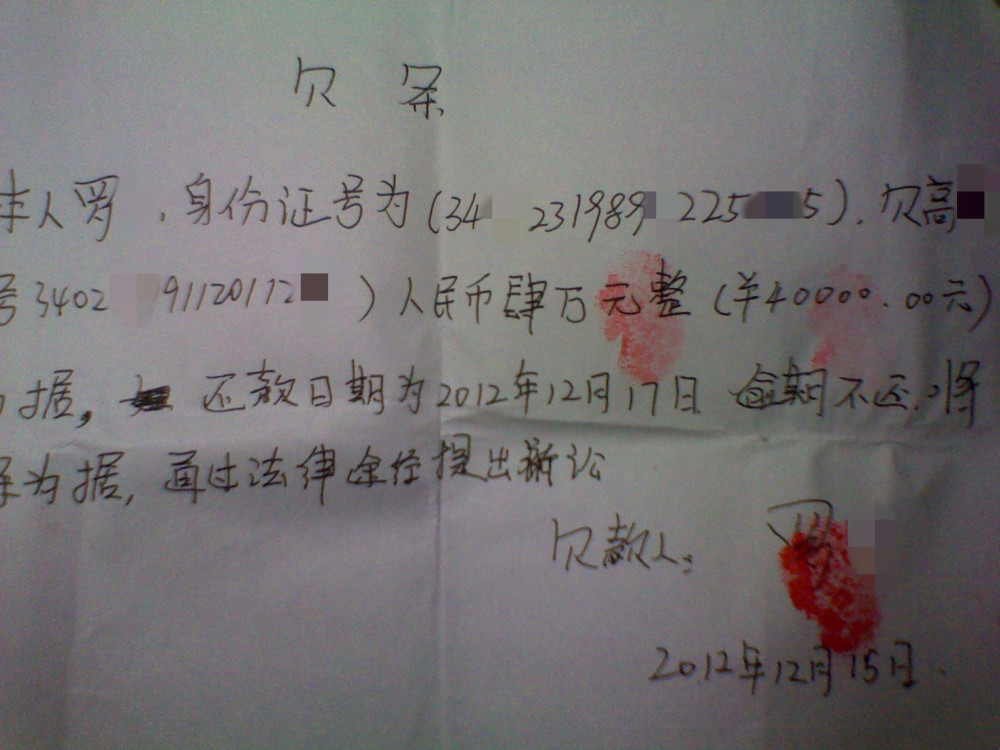 欠条
本人罗 ,身份证号为(34 231989 225 5).欠高
号3402 91120112 )人民币肆万元整(¥40000.00元)
据, 还款日期为2012年12月17日 逾期不还.将
条为据,通过法律途径提出诉讼
欠款人: 罗
2012年12月15日.